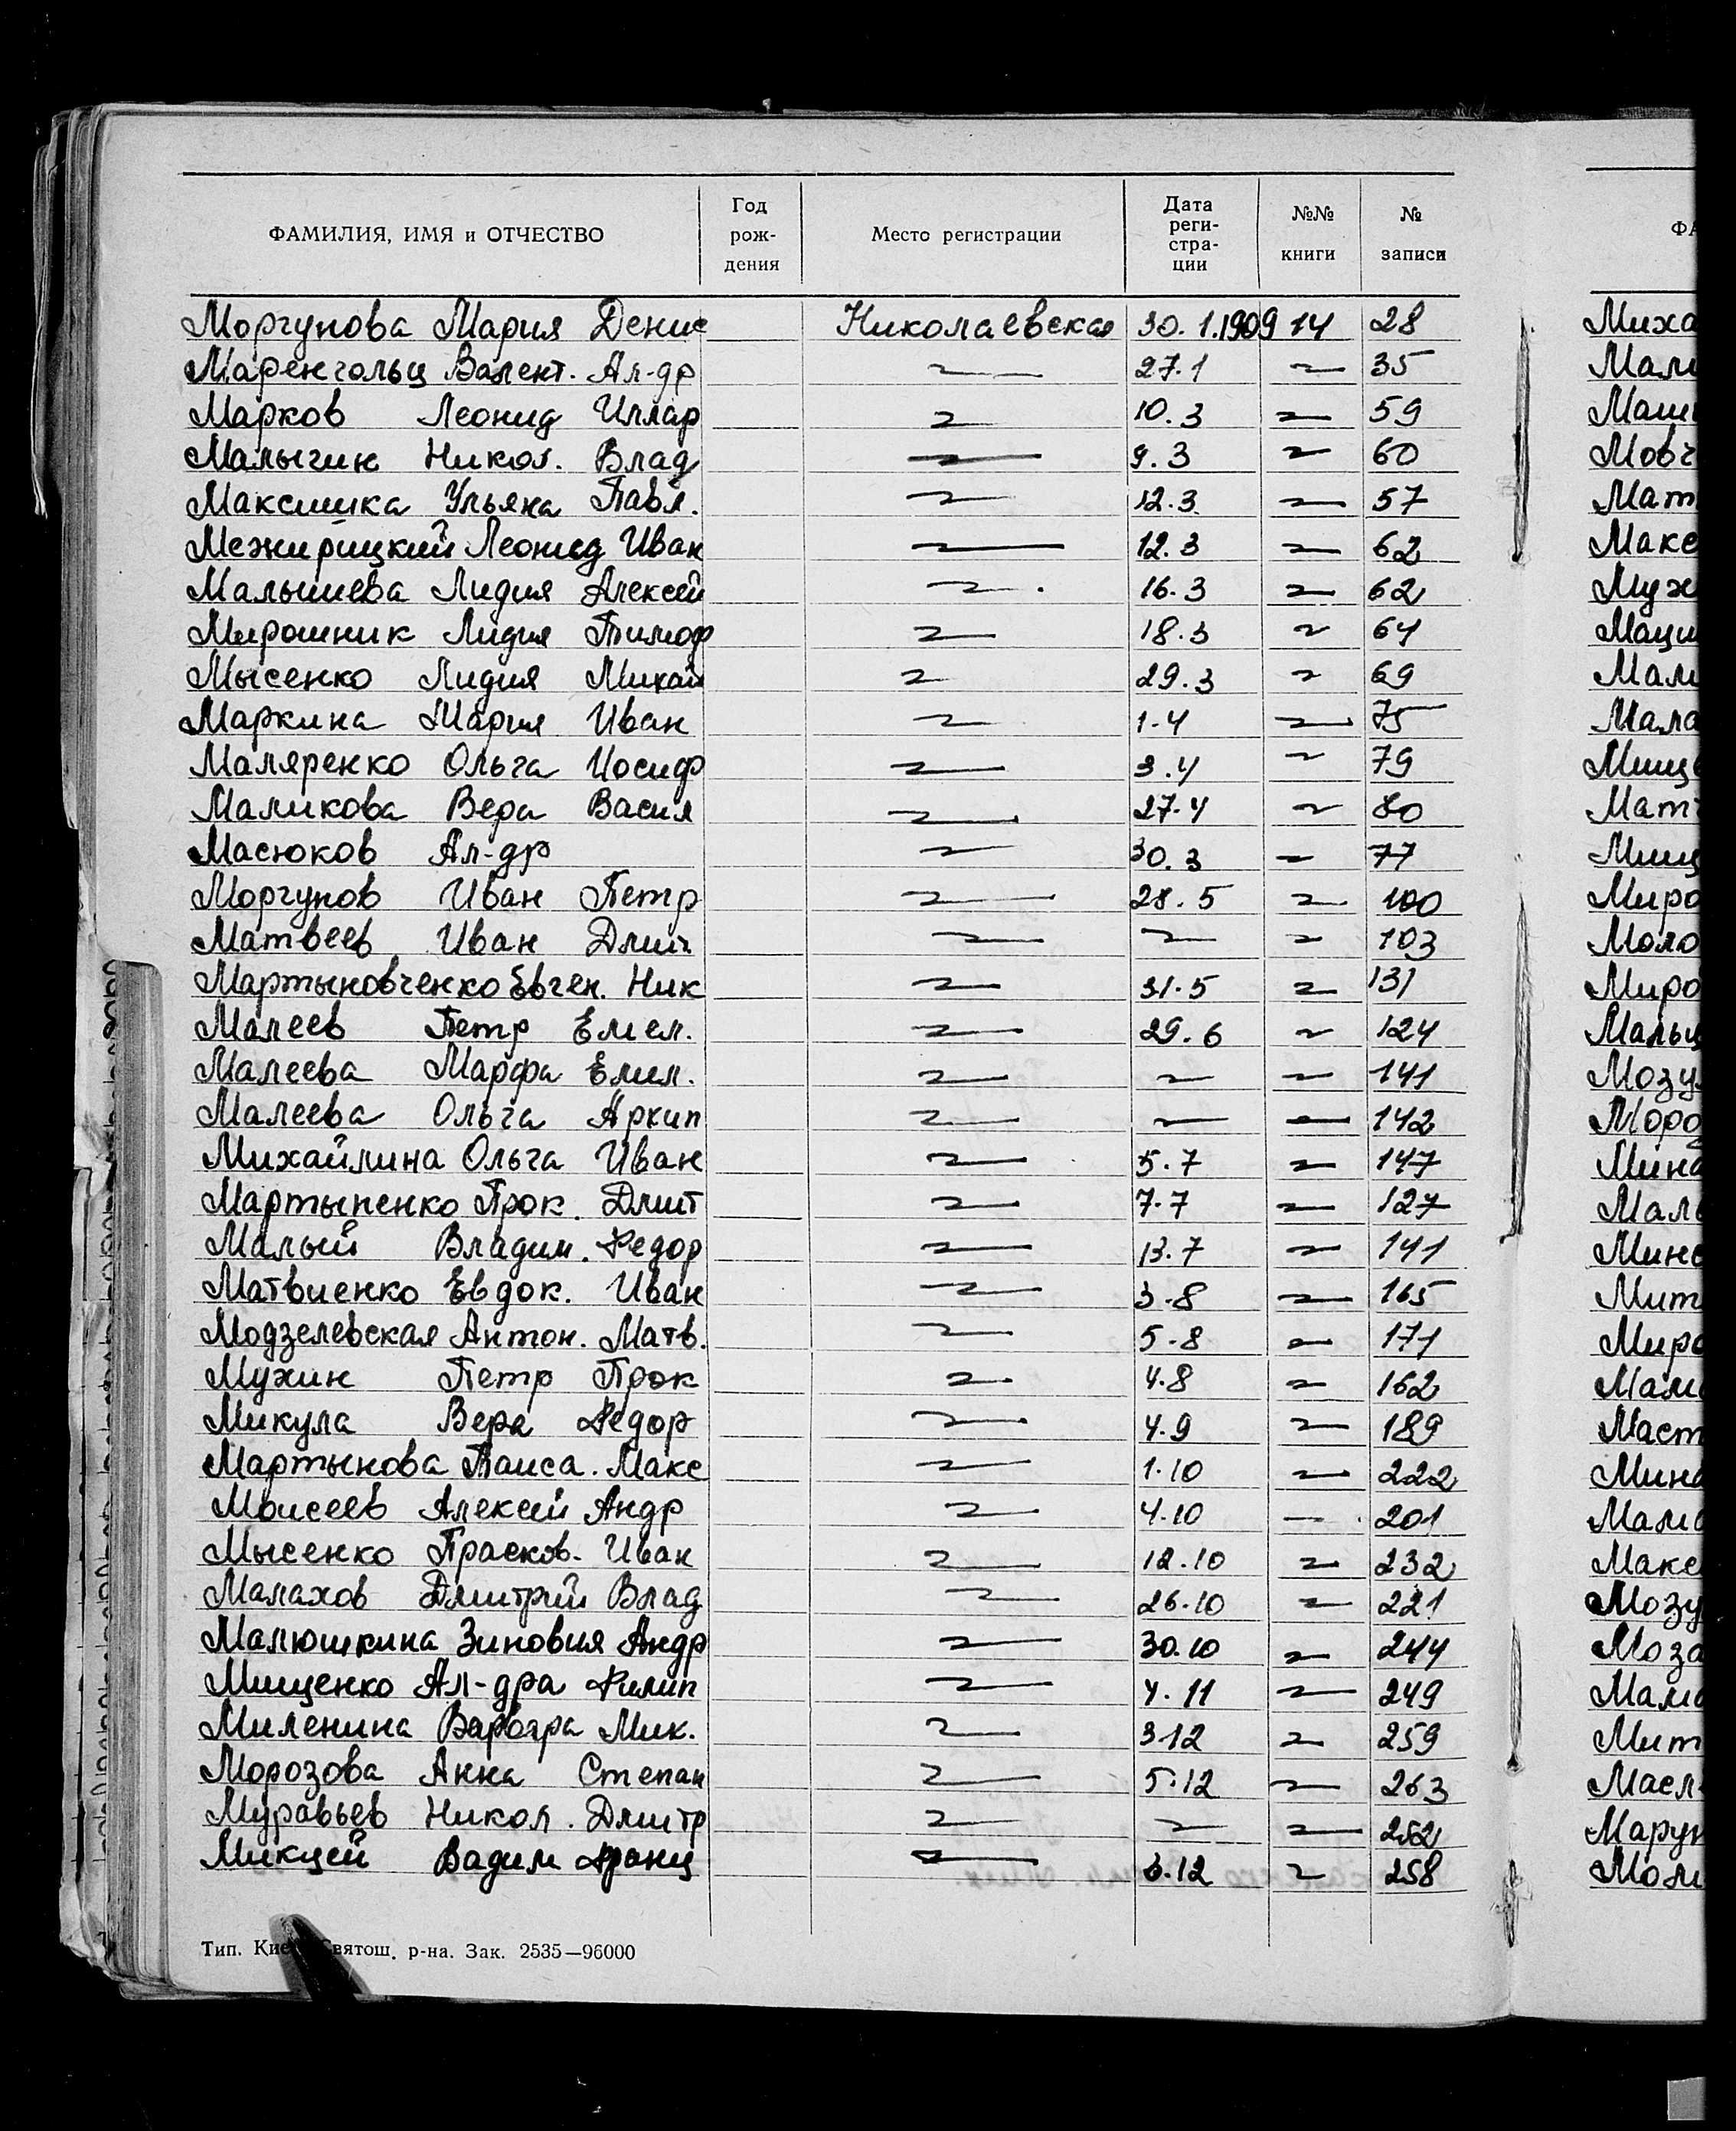 ФАМИЛИЯ, ИМЯ и ОТЧЕСТВО Год рож- дения Место регистрации Дата реги- стра- ции №№ книги № записи
Моргунова Мария Денис Николаевская 30.1.1909 14 28
Маренгольц Валент. Ал-др 27.1 35
Марков Леонид Иллар 10.3 59
Малыгин Никол. Влад 9.3 60
Максишка Ульяна Павл. 12.3 57
Межирицкий Леонид Иван 12.3 62
Малышева Лидия Алексей 16.3 62
Мирошник Лидия Тимоф 18.3 64
Мысенко Лидия Михай 29.3 69
Маркина Мария Иван 1.4 75
Маляренко Ольга Иосиф 3.4 79
Маликова Вера Васил 27.4 80
Масюков Ал-др 30.3 77
Моргунов Иван Петр 28.5 100
Матвеев Иван Дмит 103
Мартыновченко Евген. Ник 31.5 131
Малеев Петр Емел. 29.6 124
Малеева Марфа Емел. 141
Малеева Ольга Архип 142
Михайлина Ольга Иван 5.7 147
Мартыненко Прок. Дмит 7.7 127
Малый Владим. Федор 13.7 141
Матвиенко Евдок. Иван 3.8 165
Модзелевская Антон. Матв. 5.8 171
Мухин Петр Прок 4.8 162
Микула Вера Федор 4.9 189
Мартынова Таиса. Макс 1.10 222
Моисеев Алексей Андр 4.10 201
Мысенко Прасков. Иван 12.10 232
Малахов Дмитрий Влад 26.10 221
Малюшкина Зиновия Андр 30.10 244
Мищенко Ал-дра Филип 4.11 249
Миленина Мик. 3 12 259
Морозова Анна Степан 5.12 263
Муравьев Никол. Дмитр 262
Микцей Вадим Франц 3.12 258
Тип. Святош. р-на. Зак. 2535—96000